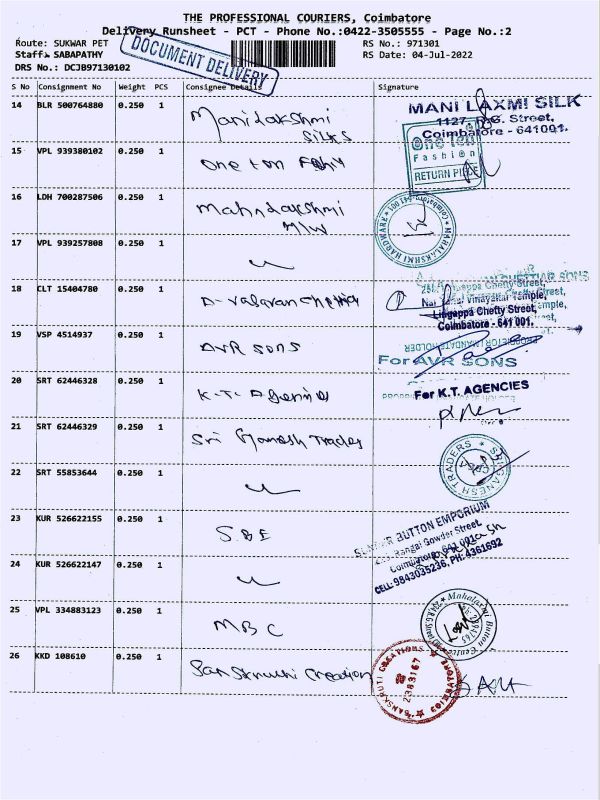 THE PROFESSIONAL COURIERS, Coimbatore
Delivery Runsheet - PCT - Phone No.:0422-3505555 - Page No.:2
Route: SUKWAR PET
RS No.: 971301
Staff: SABAPATHY
RS Date: 04-Jul-2022
DRS No.: DCJB97130102
DOCUMENT DELIVERY
S No Consignment No Weight PCS Consignee Details Signature
14 BLR 500764880 0.250 1 Manilakshmi
SILKS
MANI LAXMI SILK
Street,
Coimbatore - 641001.
15 VPL 939380102 0.250 1 One ton
One Ten
Fashion
RETURN
16 LDH 700287506 0.250 1
MAHALAKSHMI HARDWARE
17 VPL 939257808 0.250 1
18 CLT 15404780 0.250 1
SONS
Chetty Street,
Vinayakar Temple,
Lingappa Chetty Street,
Coimbatore - 641 001.
19 VSP 4514937 0.250 1 AVR SONS
For AVR SONS
20 SRT 62446328 0.250 1 K.T. Agencies
For K.T. AGENCIES
21 SRT 62446329 0.250 1 Sri Ganesh Traders
SRI GANESH TRADERS
22 SRT 55853644 0.250 1
23 KUR 526622155 0.250 1 SBE
BUTTON EMPORIUM
Rangai Gowder Street,
Coimbatore 641 001
CELL: 9843035236, PH: 4361692
24 KUR 526622147 0.250 1
25 VPL 334883123 0.250 1 MBC
Mahalaxmi Button
26 KKD 108610 0.250 1 Sanskruthi Creation
SANSKRUTI CREATIONS
COIMBATORE
2383167